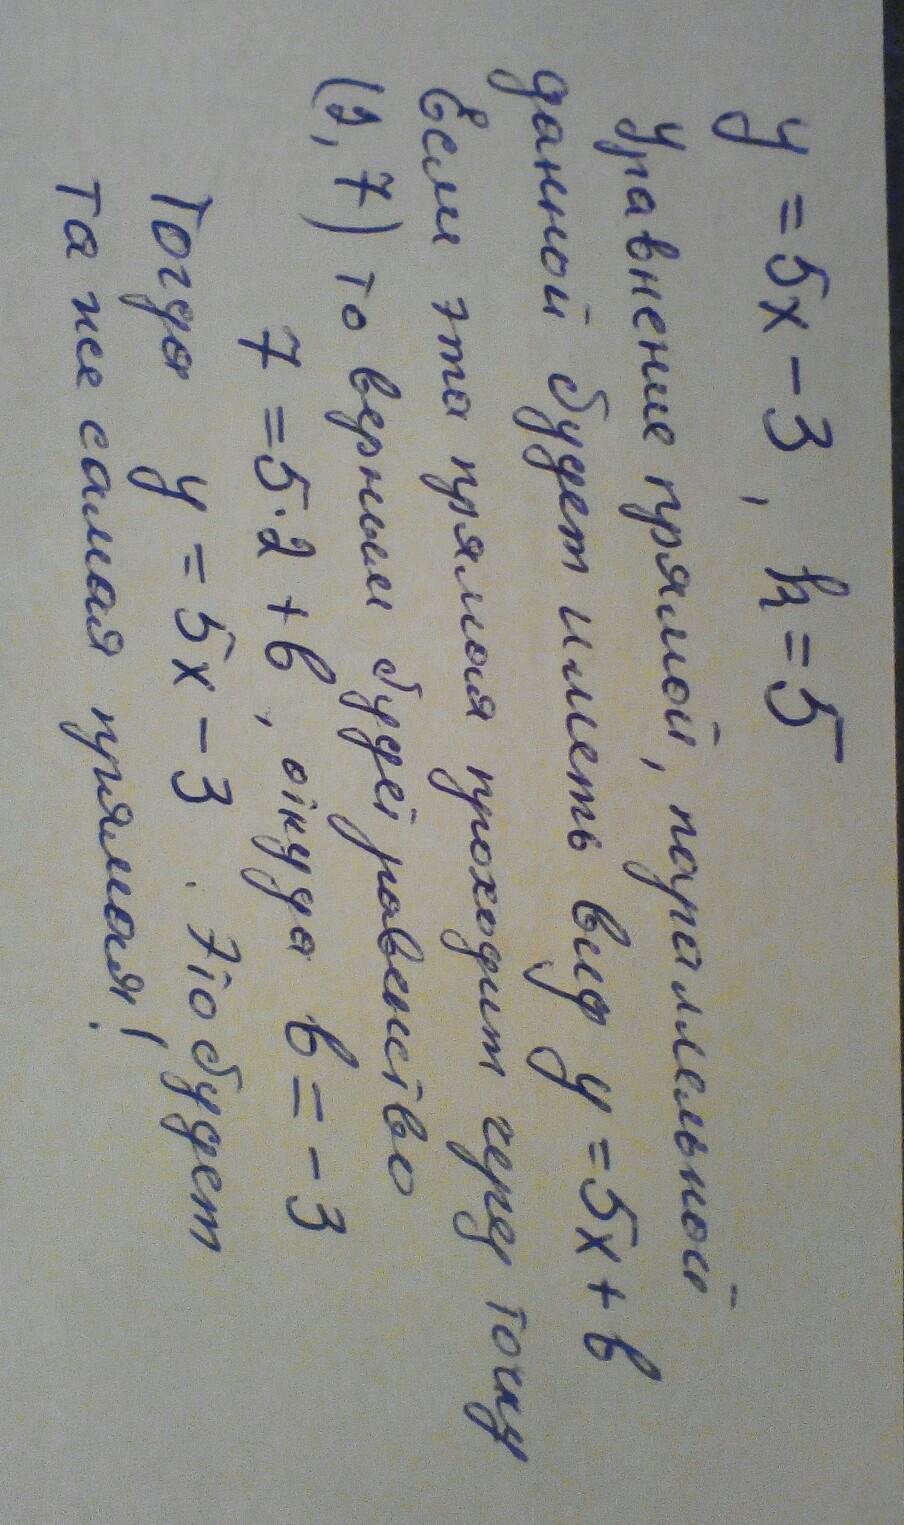 y = 5x - 3, k = 5
Уравнение прямой, параллельной
данной будет иметь вид y = 5x + b
Если эта прямая проходит через точку
(2, 7) то верным будет равенство
7 = 5·2 + b, откуда b = -3
Тогда y = 5x - 3. Это будет
та же самая прямая!